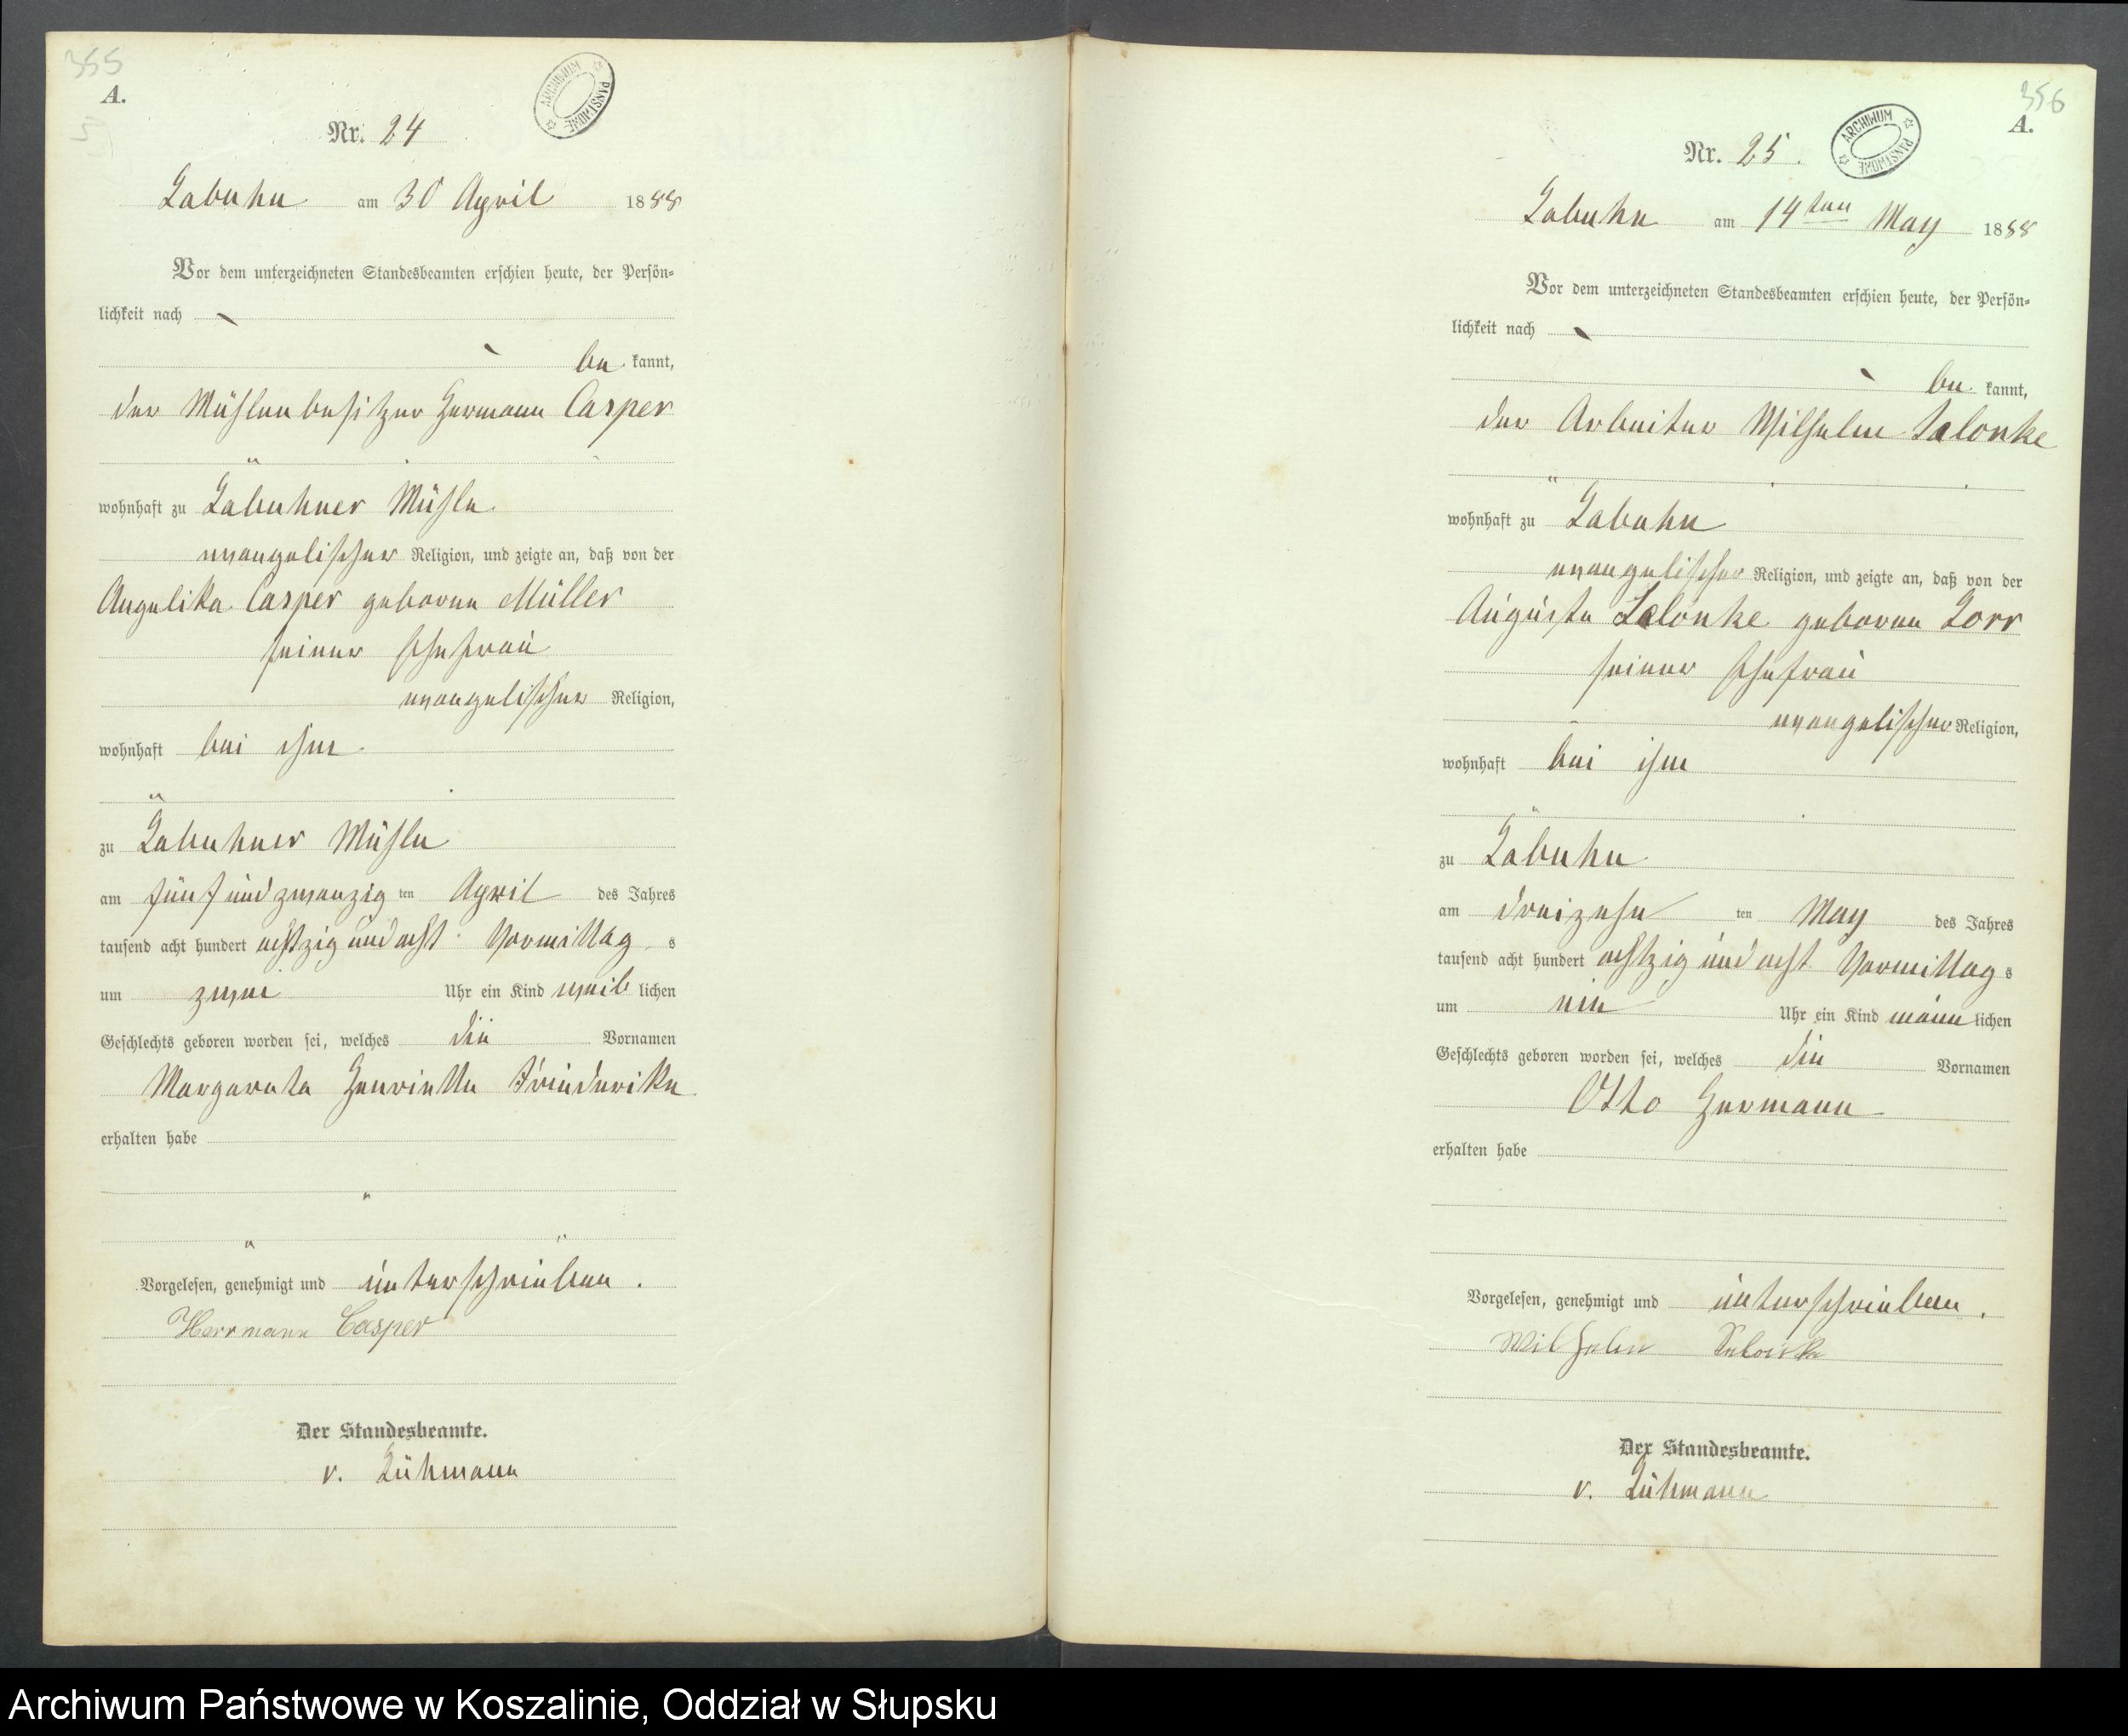 355
A.
ARCHIWUM PAŃSTWOWE
Nr. 24
Labuhn am 30 April 1888
Vor dem unterzeichneten Standesbeamten erschien heute, der Persön-
lichkeit nach
be kannt,
der Mühlenbesitzer Hermann Casper
wohnhaft zu Labuhner Mühle
evangelischer Religion, und zeigte an, daß von der
Angelika Casper geborene Müller
seiner Ehefrau
evangelischer Religion,
wohnhaft bei ihm
zu Labuhner Mühle
am fünfundzwanzig ten April des Jahres
tausend acht hundert achtzig und acht Vormittag s
um zwei Uhr ein Kind weib lichen
Geschlechts geboren worden sei, welches die Vornamen
Margareta Henriette Friederike
erhalten habe
Vorgelesen, genehmigt und unterschrieben.
Herrmann Casper
Der Standesbeamte.
v. Lühmann
356
A.
ARCHIWUM PAŃSTWOWE
Nr. 25.
Labuhn am 14ten May 1888
Vor dem unterzeichneten Standesbeamten erschien heute, der Persön-
lichkeit nach
be kannt,
der Arbeiter Wilhelm Salonke
wohnhaft zu Labuhn
evangelischer Religion, und zeigte an, daß von der
Auguste Salonke geborene Lorr
seiner Ehefrau
evangelischer Religion,
wohnhaft bei ihm
zu Labuhn
am dreizehn ten May des Jahres
tausend acht hundert achtzig und acht Vormittag s
um ein Uhr ein Kind männ lichen
Geschlechts geboren worden sei, welches die Vornamen
Otto Hermann
erhalten habe
Vorgelesen, genehmigt und unterschrieben.
Wilhelm
Der Standesbeamte.
v. Lühmann
Archiwum Państwowe w Koszalinie, Oddział w Słupsku